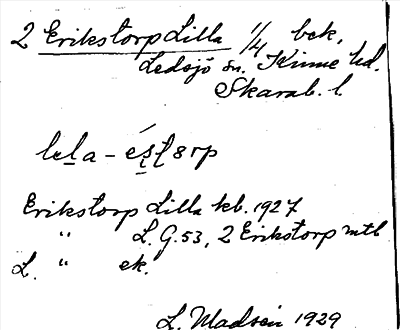 2 Erikstorp Lilla 1/4 bek,
Ledsjö sn. Kinne hd.
Skarab. l.
Erikstorp Lilla kb. 1927
" L. G. 53, 2 Erikstorp mtl
L. " ek.
L. Madsén 1929